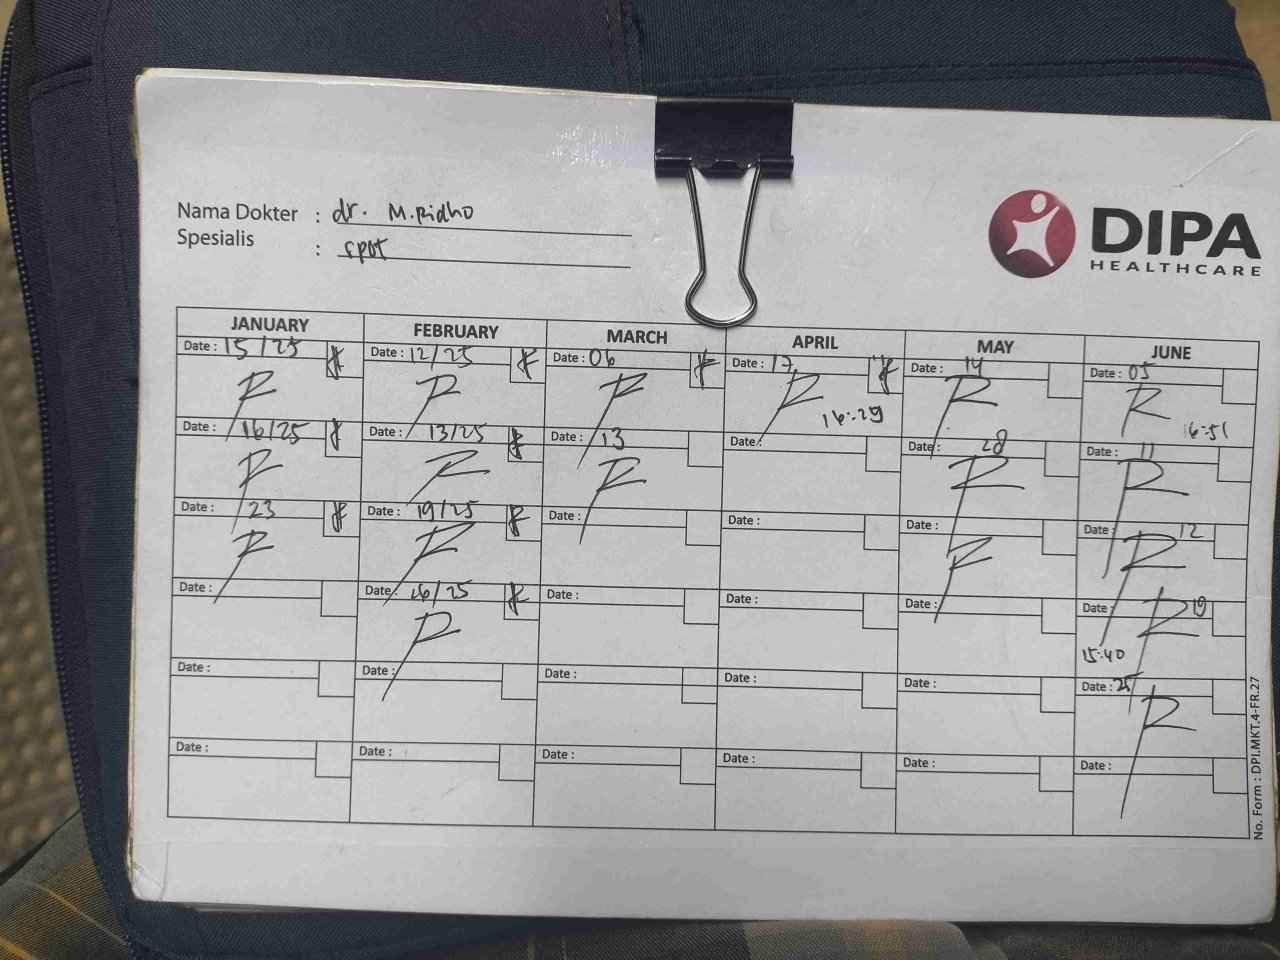 Nama Dokter : dr. M. Ridho
Spesialis : spot
DIPA
HEALTHCARE
JANUARY FEBRUARY MARCH APRIL MAY JUNE
Date : 15/25 Date : 12/25 Date : 06 Date : 17 Date : 14 Date : 05
16:29 16:51
Date : 16/25 Date : 13/25 Date : 13 Date : Date : 28 Date : 11
Date : 23 Date : 19/25 Date : Date : Date : Date : 12
Date : Date : 26/25 Date : Date : Date : Date : 19
15:40
Date : Date : Date : Date : Date : Date : 25
Date : Date : Date : Date : Date : Date :
No. Form : DPI.MKT.4-FR.27